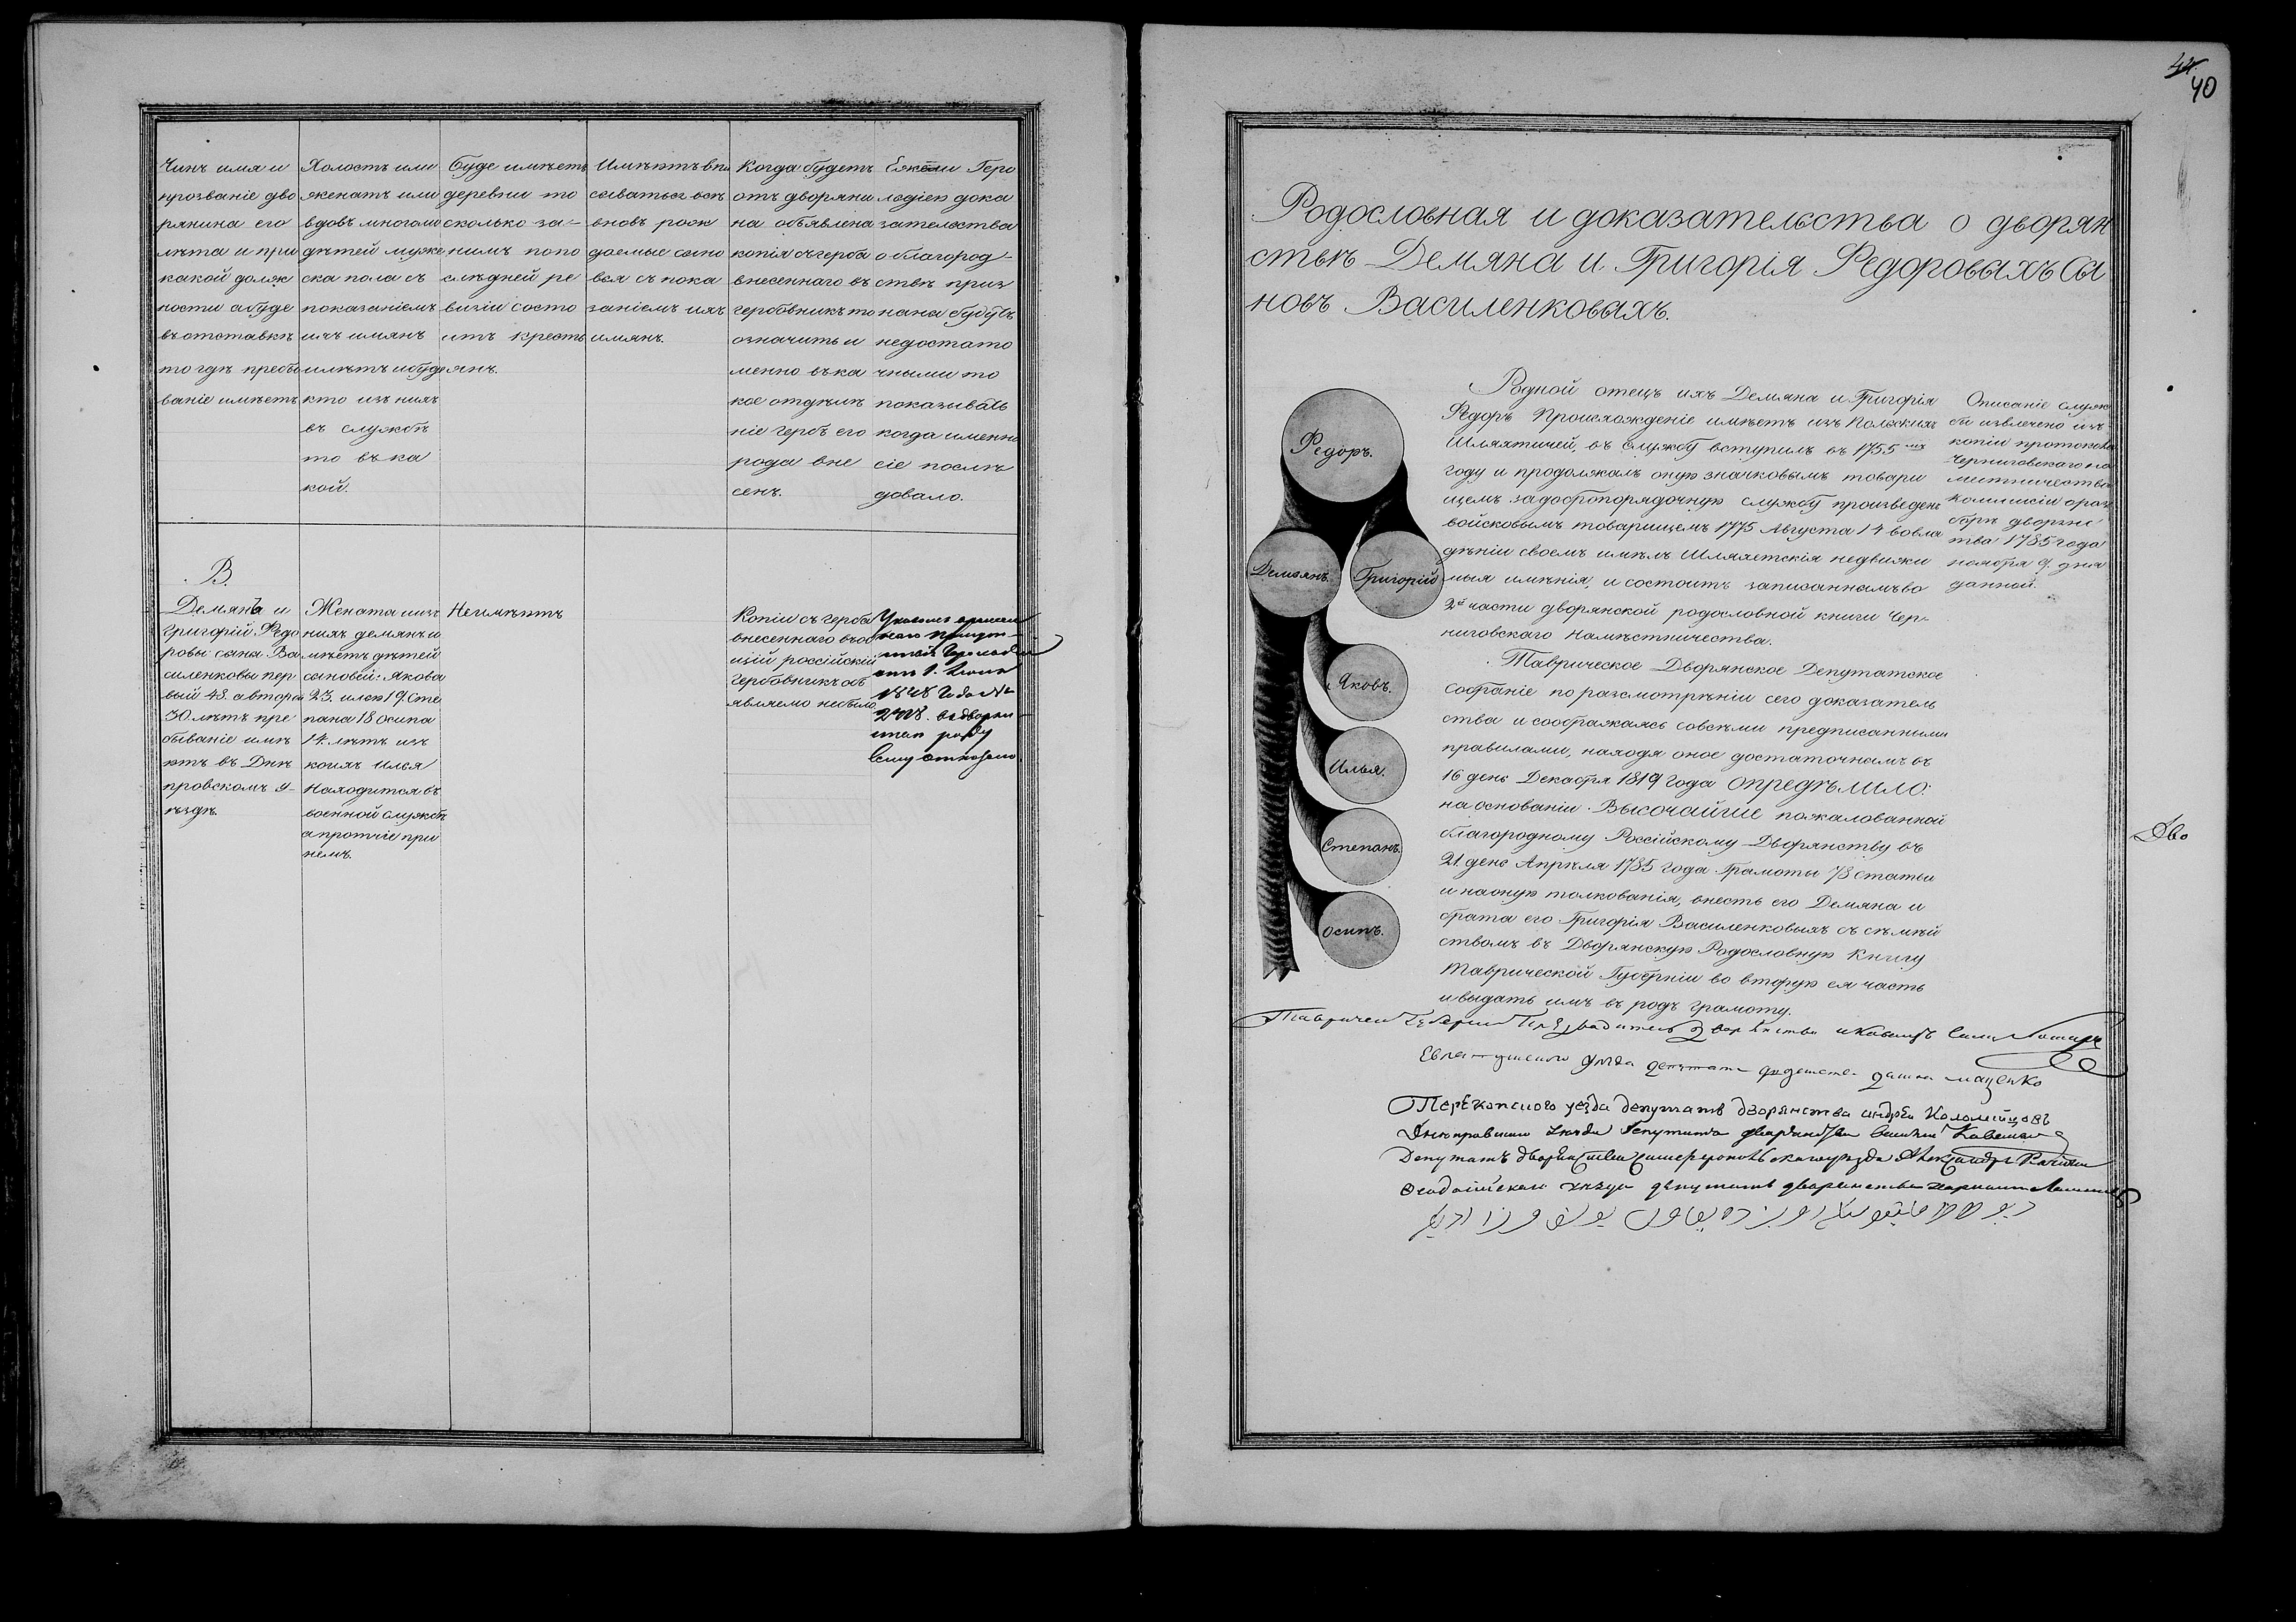 44
40
Чинъ имя и
прозваніе дво
рянина его
лѣта и при
какой долж
ности абуде
въотставкѣ
тогдѣ пребы
ваніе имѣетъ
Холостъ или
женатъ или
вдовъ многоли
дѣтей муже
ска пола съ
показаніемъ
ихъ имянъ
илѣтъ ибуде
кто изъ нихъ
въ службѣ
то въ ка
кой.
буде имѣетъ
деревни то
сколько за-
нимъ попо
слѣдней ре
визіи состо
итъ кресть
янъ.
Имѣютъ впи
сыватьсь всѣ
вновь рож
даемые сыно
вья съ пока
заніемъ ихъ
имянъ.
Когда будетъ
отъ дворяни
на объявлена
копія съгерба
внесеннаго въ
гербовникъ то
означить и
менно въ ка
кое отдѣле
ніе гербъ его
рода вне
сенъ.
Ежели Геро
лдіею дока
зательства
о благород-
ствѣ приз
наны будутъ
недостато
чными то
показывать
когда именно
сіе послѣ
довало.
В.
Демянъ и
Григорій Ѳедо
ровы сыны Ва
силенковы пер
вый 48. авторой
30 лѣтъ пре
бываніе имѣ
ютъ въ Днѣ
провскомъ у-
ѣздѣ.
Женаты иизъ
нихъ демянъ и
мѣетъ дѣтей
сыновей: Якова
23. илью 19. Сте
пана 18 осипа
14. лѣтъ изъ
коихъ Илья
Находится въ
военной службѣ
апротчіе при
немъ.
Неимѣютъ
Копіи съ герба
внесеннаго въоб
щій россійскій
гербовникъ объ
являемо небыло
1848 Года №
роду
сему отказано.
Родословная и доказательства о дворян
ствѣ Демяна и Григорія Ѳедоровыхъ Сы
новъ Василенковыхъ.
Ѳедоръ.
Демьянъ.
Григорій
Яковъ.
Илья.
Степанъ.
Осипъ.
Родной отецъ ихъ Демяна и Григорія
Ѳедоръ Происхожденіе имѣетъ изъ Польскихъ
Шляхтичей, въ Службу вступилъ въ 1755мъ
году и продолжалъ оную значковымъ товари
щемъ задобропорядочную службу произведенъ
войсковымъ товарищемъ 1775 Августа 14 вовла
дѣніи своемъ имѣлъ Шляхетскія недвижи
мыя имѣнія, и состоитъ записаннымъ во
2й части дворянской родословной книги Чер-
ниговскаго Намѣстничества.
Описаніе служ
бы извлечено изъ
копіи протокола
Черниговскаго на
мѣтничества
Коммисіи ораз
борѣ дворянс
тва 1785 года
ноября 9. дня
данной.
Таврическое Дворянское Депутатское
собраніе по разсмотрѣніи сего доказатель
ства и соображаясь совсѣми предписанными
правилами, находя оное достаточнымъ въ
16 день Декабря 1819 года опредѣлило:
на основаніи Высочайше пожалованной
благородному Россійскому Дворянству въ
21. день Апрѣля 1785 года Грамоты 78 Статьи
и наоную толкованія, внесть его Демяна и
брата его Григорія Василенковыхъ съ сѣмей
ствомъ въ Дворянскую Родословную Книгу
Таврической Губерніи во вторую ея часть
и выдать имъ въ родъ грамоту.
Дво
Губерніи Предводитель Дворянства
уѣзда депутатъ
Перекопского уезда депутатъ дворянства андрей Коломійцовъ
Днепровскаго депутатъ дворянства
Депутатъ дворянства Симферопольскаго уѣзда Александръ
Феодосійскаго уѣзда депутатъ дворянства